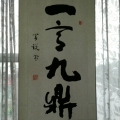 一言九鼎